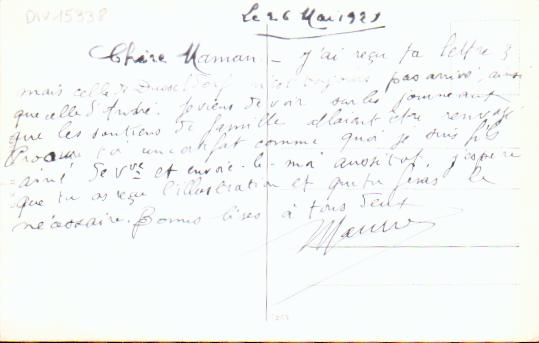 DIV-15338
Le 26 Mai 1921
Chère Maman - j'ai reçu ta lettre
mais celle de Dusseldorf n'est toujours pas arrivé, ainsi
que celle d'André. Je viens de voir sur les journeaux
que les soutiens de famille allaient être renvoyé
Procure toi un certificat comme quoi je suis fils
ainé de vve et envoie-le-moi aussitot, j'espère
que tu as reçu l'illustration et que tu feras le
nécessaire. Bonnes bises à tous deux